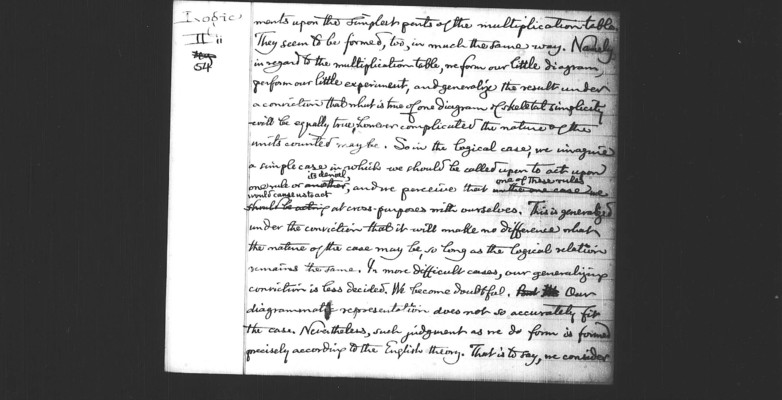 Logic
II ii
54
ments upon the simplest parts of the multiplication-table.
They seem to be formed, too, in much the same way. Namely
in regard to the multiplication-table, we form our little diagram,
perform our little experiment, and generalize the result under
a conviction that what is true of one diagram of skeletal simplicity
will be equally true, however complicated the nature of the
units counted may be. So in the logical case, we imagine
a simple case in which we should be called upon to act upon
its denial one of these rules
one rule or another, and we perceive that in the one case we
would cause us to act
should be acting at cross-purposes with ourselves. This is generalized
under the conviction that it will make no difference what
the nature of the case may be, so long as the logical relation
remains the same. In more difficult cases, our generalizing
conviction is less decided. We become doubtful. Our
diagrammatic representation does not so accurately fit
the case. Nevertheless, such judgment as we do form is formed
precisely according to the English theory. That is to say, we consider